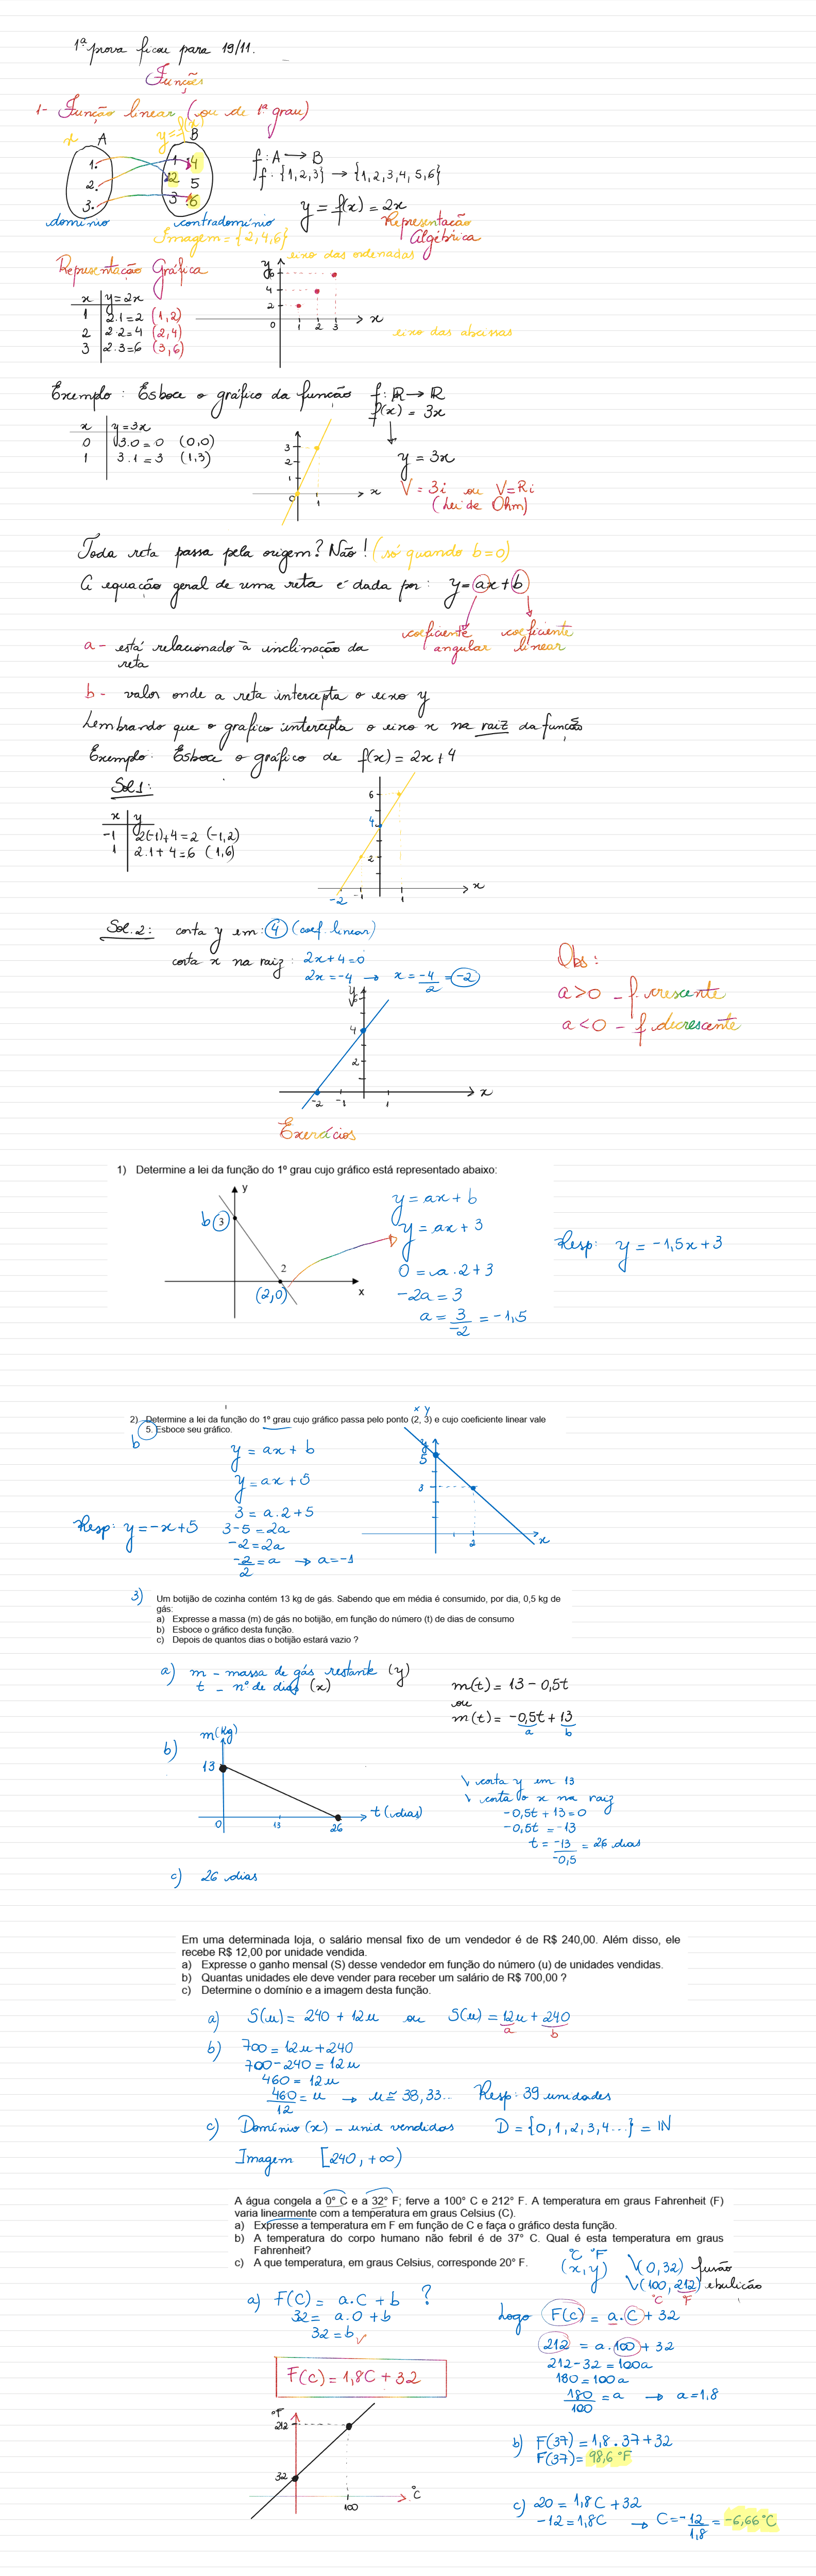 1ª prova ficou para 19/11.
Funções
1- Função linear (ou de 1º grau)
x A y=f(x) B
1. 2. 3.
1 4
2 5
3 6
domínio contradomínio
Imagem = {2,4,6}
f: A → B
f: {1,2,3} → {1,2,3,4,5,6}
y = f(x) = 2x
Representação Algébrica
Representação Gráfica
x y=2x
1 2.1=2 (1,2)
2 2.2=4 (2,4)
3 2.3=6 (3,6)
eixo das ordenadas
y
6
4
2
0 1 2 3 x
eixo das abcissas
Exemplo: Esboce o gráfico da função f: R → R
f(x) = 3x
x y=3x
0 3.0=0 (0,0)
1 3.1=3 (1,3)
3
2
1
0 1 x
y = 3x
V = 3i ou V=Ri
(Lei de Ohm)
Toda reta passa pela origem? Não! (só quando b=0)
A equação geral de uma reta é dada por: y=ax+b
coeficiente angular
coeficiente linear
a - está relacionado à inclinação da reta
b - valor onde a reta intercepta o eixo y
Lembrando que o grafico intercepta o eixo x na raiz da função
Exemplo: Esboce o gráfico de f(x) = 2x+4
Sol 1:
x y
-1 2(-1)+4=2 (-1,2)
1 2.1+4=6 (1,6)
6
4
2
-2 -1 1 x
Sol. 2: corta y em: 4 (coef. linear)
corta x na raiz: 2x+4=0
2x=-4 → x = -4/2 = -2
Obs:
a>0 - f. crescente
a<0 - f. decrescente
y
4
2
-2 -1 1 x
Exercícios
1) Determine a lei da função do 1º grau cujo gráfico está representado abaixo:
y
b 3
2
(2,0) x
y = ax + b
y = ax + 3
0 = a.2+3
-2a = 3
a = 3/-2 = -1,5
Resp: y = -1,5x+3
x y
2) Determine a lei da função do 1º grau cujo gráfico passa pelo ponto (2, 3) e cujo coeficiente linear vale
5. Esboce seu gráfico.
b
y = ax + b
y = ax + 5
3 = a.2+5
3-5=2a
-2=2a
-2/2 = a → a=-1
Resp: y=-x+5
y
5
3
2 x
3) Um botijão de cozinha contém 13 kg de gás. Sabendo que em média é consumido, por dia, 0,5 kg de
gás:
a) Expresse a massa (m) de gás no botijão, em função do número (t) de dias de consumo
b) Esboce o gráfico desta função.
c) Depois de quantos dias o botijão estará vazio ?
a) m - massa de gás restante (y)
t - nº de dias (x)
m(t) = 13 - 0,5t
ou
m(t) = -0,5t + 13
a b
b) m(Kg)
13
0 13 26 t(dias)
corta y em 13
corta o x na raiz
-0,5t + 13 = 0
-0,5t = -13
t = -13/-0,5 = 26 dias
c) 26 dias
Em uma determinada loja, o salário mensal fixo de um vendedor é de R$ 240,00. Além disso, ele
recebe R$ 12,00 por unidade vendida.
a) Expresse o ganho mensal (S) desse vendedor em função do número (u) de unidades vendidas.
b) Quantas unidades ele deve vender para receber um salário de R$ 700,00 ?
c) Determine o domínio e a imagem desta função.
a) S(u) = 240 + 12u ou S(u) = 12u + 240
a b
b) 700 = 12u+240
700-240 = 12u
460 = 12u
460/12 = u → u ≅ 38,33... Resp: 39 unidades
c) Domínio (x) - unid vendidas D = {0,1,2,3,4...} = IN
Imagem [240, +∞)
A água congela a 0° C e a 32° F; ferve a 100° C e 212° F. A temperatura em graus Fahrenheit (F)
varia linearmente com a temperatura em graus Celsius (C).
a) Expresse a temperatura em F em função de C e faça o gráfico desta função.
b) A temperatura do corpo humano não febril é de 37° C. Qual é esta temperatura em graus
Fahrenheit?
c) A que temperatura, em graus Celsius, corresponde 20° F.
°C °F
(x, y) (0,32) fusão
(100,212) ebulição
°C °F
a) F(C) = a.C + b ?
32 = a.0 + b
32 = b
F(C) = 1,8C + 32
Logo F(C) = a.C + 32
212 = a.100 + 32
212-32 = 100a
180 = 100a
180/100 = a → a=1,8
°F
212
32
100 °C
b) F(37) = 1,8.37+32
F(37) = 98,6 °F
c) 20 = 1,8C + 32
-12 = 1,8C → C = -12/1,8 = -6,66 °C